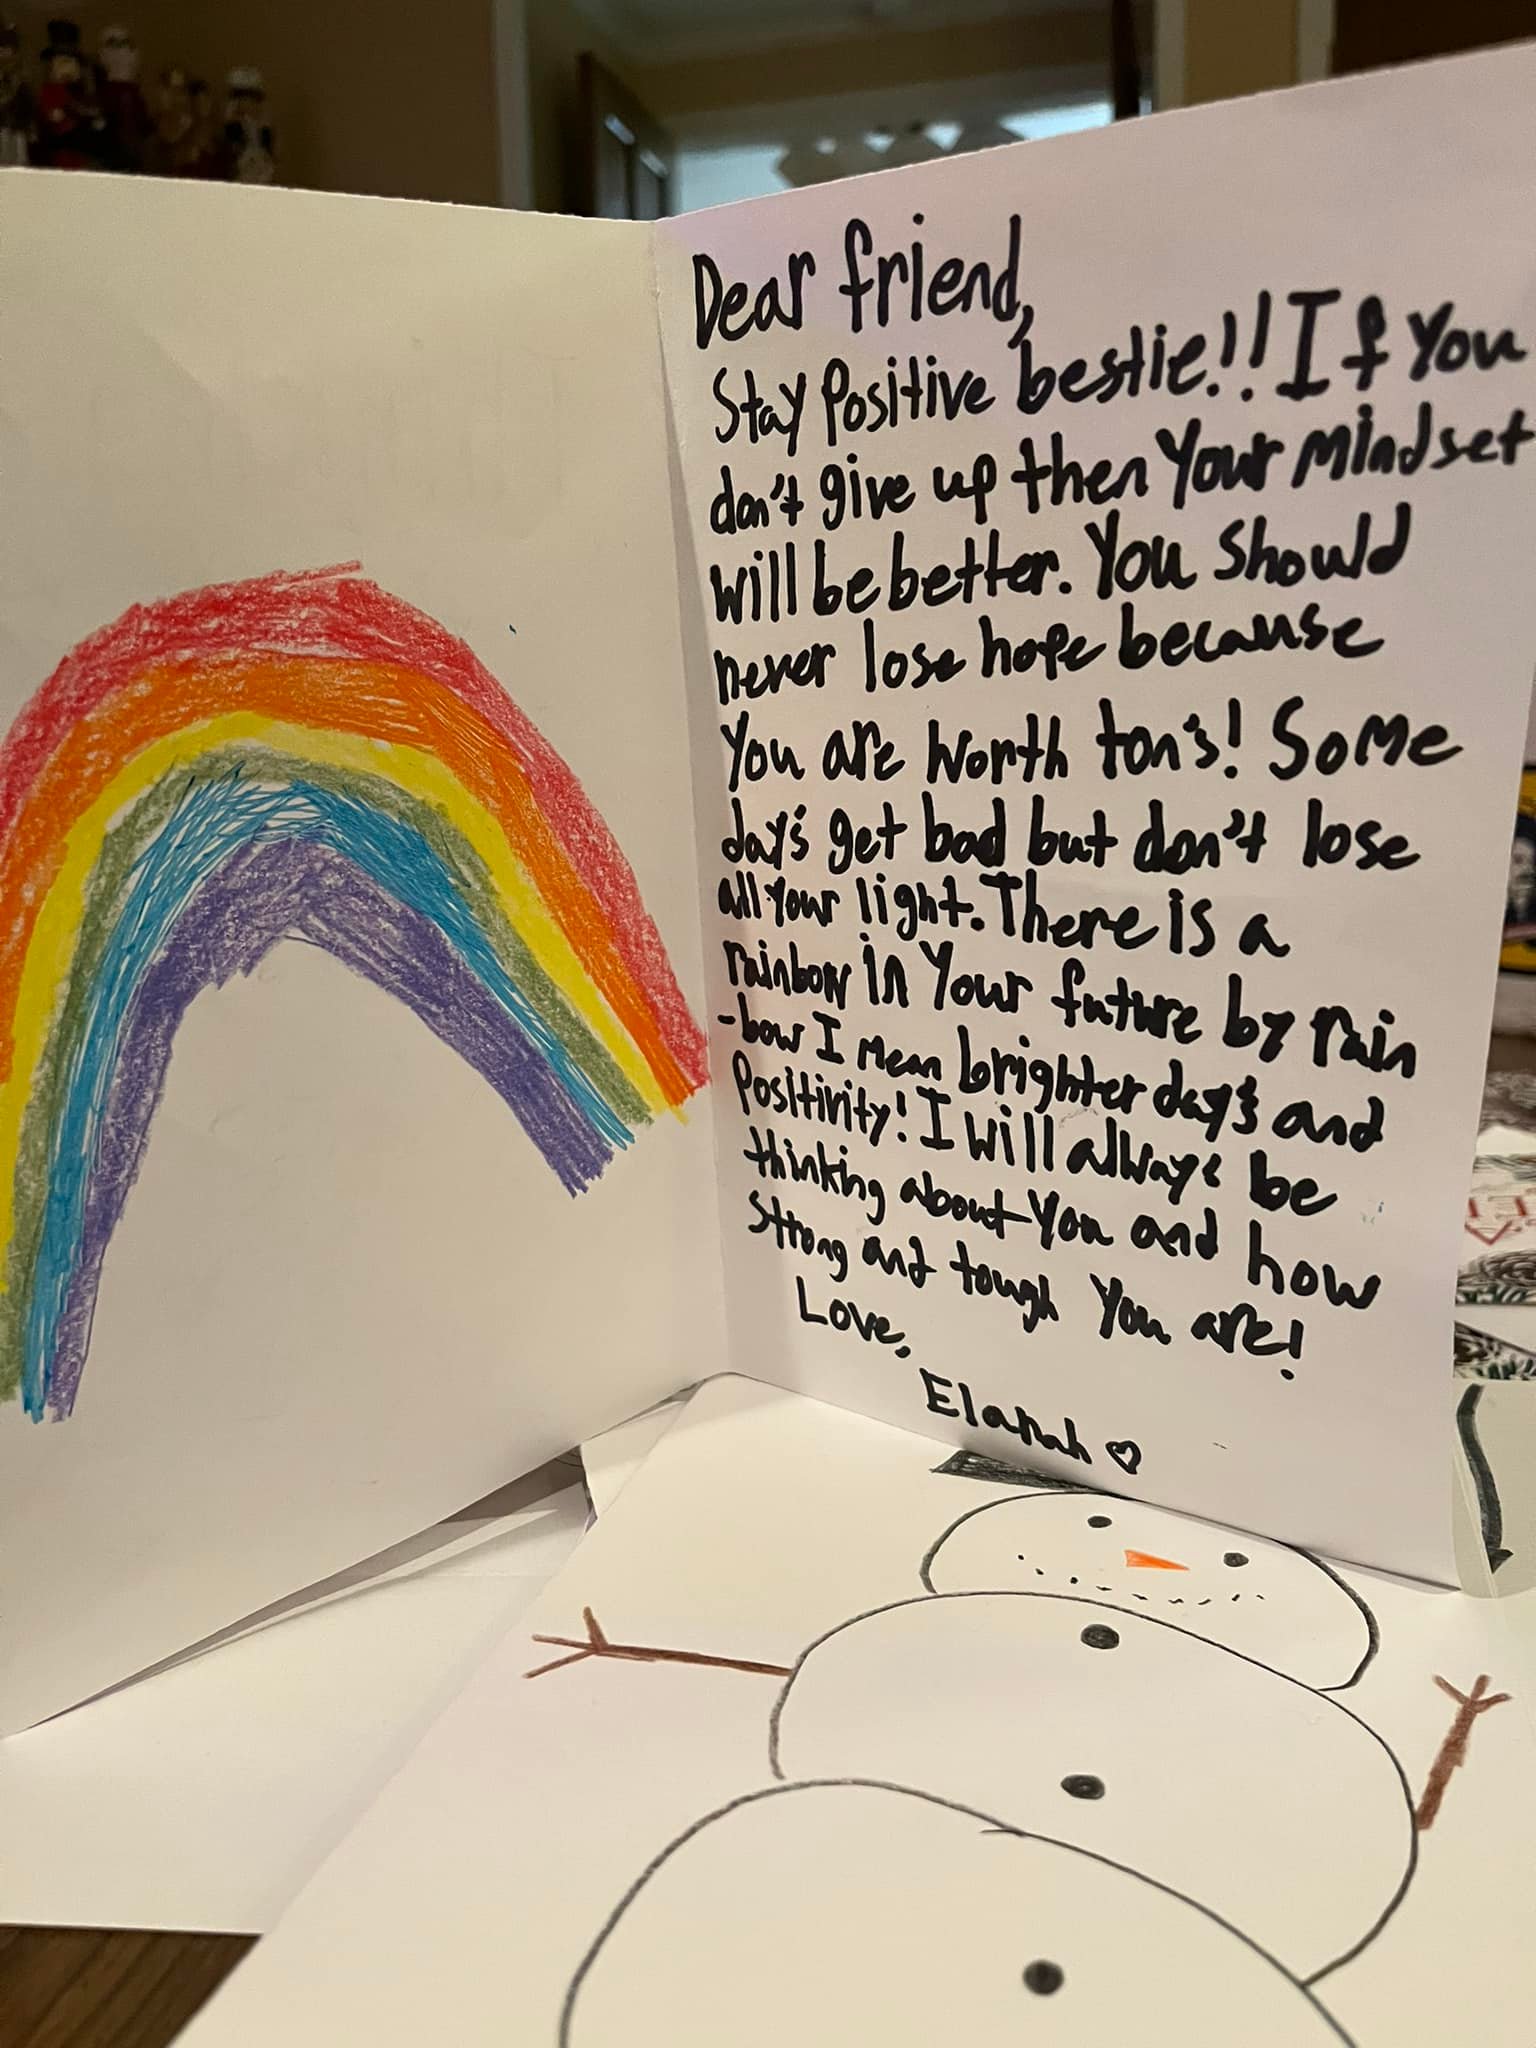 Dear friend,
Stay Positive bestie!! If You
don't give up then Your mindset
will be better. You should
never lose hope because
You are worth ton's! Some
day's get bad but don't lose
all your light. There is a
rainbow in Your future by rain
-bow I mean brighter day's and
Positivity! I will always be
thinking about You and how
Strong and tough You are!
Love,
Elanah ♡